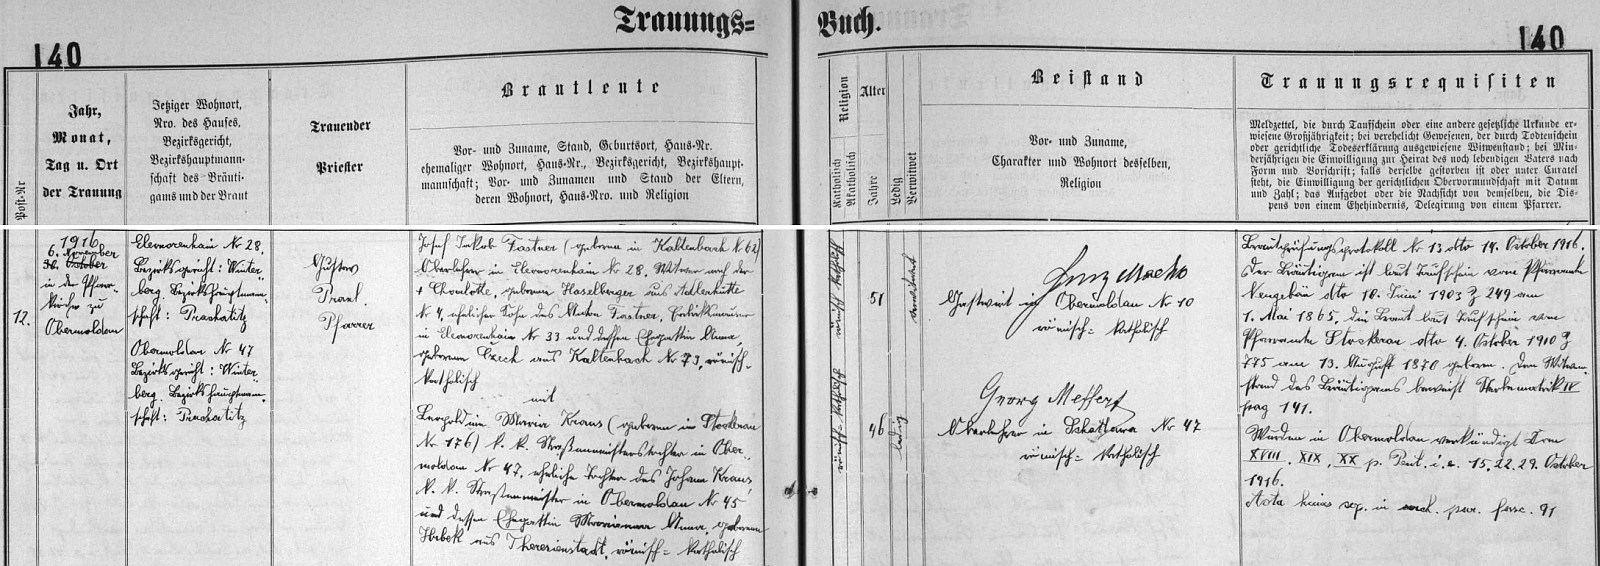 Trauungs=
Buch.
140
140
Post-Nr
Jahr,
Monat,
Tag u. Ort
der Trauung
Jetziger Wohnort,
Nro. des Hauses,
Bezirksgericht,
Bezirkshauptmann-
schaft des Bräuti-
gams und der Braut
Trauender
Priester
Brautleute
Vor- und Zuname, Stand, Geburtsort, Haus-Nr.
ehemaliger Wohnort, Haus-Nr., Bezirksgericht, Bezirkshaupt-
mannschaft; Vor- und Zunamen und Stand der Eltern,
deren Wohnort, Haus-Nro. und Religion
Religion
Katholisch
Akatholisch
Alter
Jahre
Ledig
Verwitwet
Beistand
Vor- und Zuname,
Charakter und Wohnort desselben,
Religion
Trauungsrequisiten
Meldzettel, die durch Taufschein oder eine andere gesetzliche Urkunde er-
wiesene Großjährigkeit; bei verehelicht Gewesenen, der durch Todtenschein
oder gerichtliche Todeserklärung ausgewiesene Witwenstand; bei Min-
derjährigen die Einwilligung zur Heirat des noch lebendigen Vaters nach
Form und Vorschrift; falls derselbe gestorben ist oder unter Curatel
steht, die Einwilligung der gerichtlichen Obervormundschaft mit Datum
und Zahl; das Aufgebot oder die Nachsicht von demselben, die Dis-
pens von einem Ehehindernis, Delegirung von einem Pfarrer.
12.
1916
6. November
30. October
in der Pfarr-
kirche zu
Obermoldau
Eleonorenhain Nr 28,
Bezirksgericht: Winter-
berg, Bezirkshauptmann-
schaft: Prachatitz
Obermoldau Nr 47
Bezirksgericht: Winter-
berg, Bezirkshauptmann-
schaft: Prachatitz
Gustav
Pfarrer
Josef Jakob Fastner (geboren in Kaltenbach N 62)
Oberlehrer in Eleonorenhain Nr 28, Witwer nach der
+ Charlotte, geborenen Haselberger aus Adlerhütte
Nr 4, ehelicher Sohn des Anton Fastner,
in Eleonorenhain Nr 33 und dessen Ehegattin Anna,
geborenen Czech aus Kaltenbach Nr 73, römisch-
katholisch
mit
Leopoldine Maria Kraus (geboren in Stockerau
Nr 176) k. k. Straßenmeisterstochter in Ober-
moldau Nr 47, eheliche Tochter des Johann Kraus
k. k. Straßenmeister in Obermoldau Nr 45
und dessen Ehegattin Marianna Anna, geborenen
Hrbek aus Theresienstadt, römisch=katholisch
51
verwitwet
46
ledig
Franz Macho
Gastwirt in Obermoldau Nr 10
römisch=katholisch
Georg Meffert
Oberlehrer in Schattawa Nr 47
römisch=katholisch
Brautprüfungsprotokoll Nr 13 dto 14. October 1916.
Der Bräutigam ist laut Taufschein vom Pfarramte
Neugebäu dto 10. Juni 1903 Z 249 am
1. Mai 1865, die Braut laut Taufschein vom
Pfarramte Stockerau dto 4. October 1910 Z
775 am 13. August 1870 geboren. Den Witwer-
stand des Bräutigams beweist Sterbematrik IV
pag 141.
Wurden in Obermoldau verkündigt Dom
XVIII, XIX, XX p. Pent. i. e. 15. 22. 29. October
1916.
Acta huius cop. in arch. par. fasc. 91